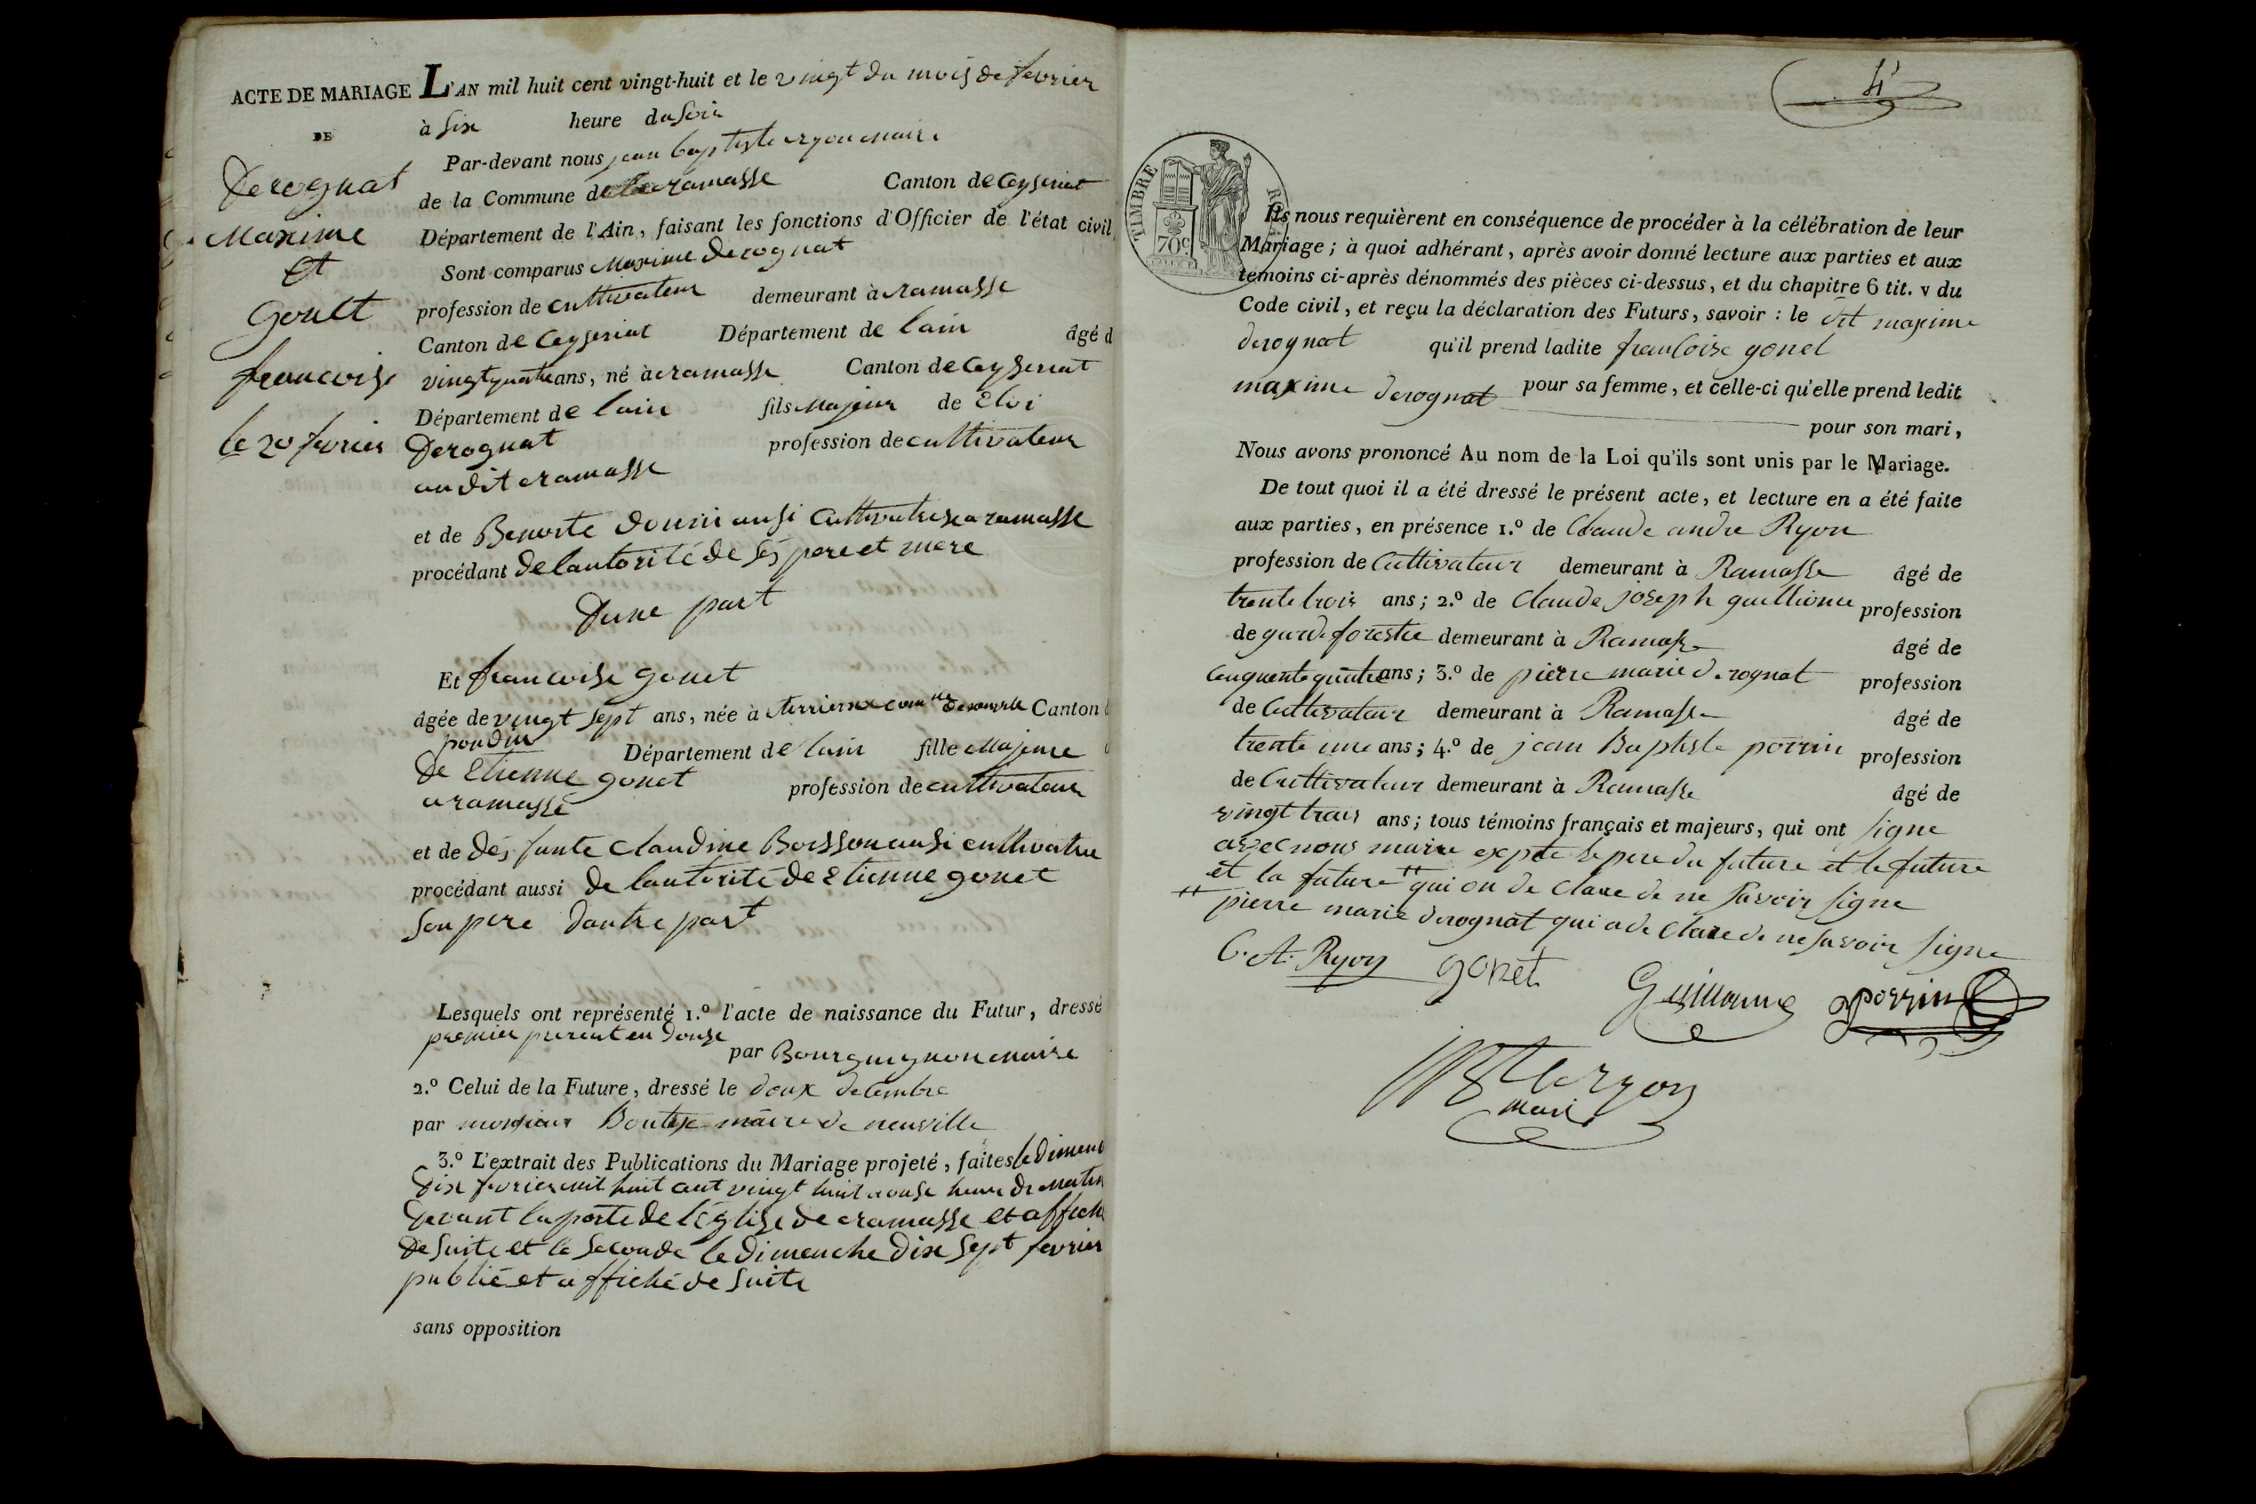 ACTE DE MARIAGE
DE
Derognat
Maxime
et
Gonet
francoise
le 20 fevrier
L'AN mil huit cent vingt-huit et le vingt du mois de fevrier
à Six heure du Soir
Par-devant nous jean baptiste ryon maire
de la Commune de ramasse Canton de Ceyseriat
Département de l'Ain, faisant les fonctions d'Officier de l'état civil
Sont comparus Maxime Derognat
profession de cultivateur demeurant à ramasse
Canton de Ceyseriat Département de lain âgé d
vingt quatre ans, né à ramasse Canton de Ceyseriat
Département de lain fils Majeur de Eloi
Derognat profession de cultivateur
au dit ramasse
et de Benoite ausi cultivatrise a ramasse
procédant de lautorité de ses pere et mere
Dune part
Et francoise gonet
âgée de vingt sept ans, née à Canton
pondin Département de lain fille Majeure
de Etienne gonet profession de cultivateur
a ramasse
et de defunte Claudine Boisson ausi cultivatrise
procédant aussi de lautorité de Etienne gonet
Son pere Dautre part
Lesquels ont représenté 1.º l'acte de naissance du Futur, dressé
premier en Douse
par Bourguignon maire
2.º Celui de la Future, dressé le doux decembre
par monsieur maire de neuville
3.º L'extrait des Publications du Mariage projeté, faites le Dimenc
Dix fevrier mil huit cent vingt huit a onse heure du matin
Devant la porte de léglise de ramasse et affiche
de Suite et la Seconde le Dimenche Dix Sept fevrier
publié et affiché de Suite
sans opposition
4
TIMBRE
70c
Ils nous requièrent en conséquence de procéder à la célébration de leur
Mariage; à quoi adhérant, après avoir donné lecture aux parties et aux
témoins ci-après dénommés des pièces ci-dessus, et du chapitre 6 tit. v du
Code civil, et reçu la déclaration des Futurs, savoir : le dit maxime
derognat qu'il prend ladite francoise gonet
pour sa femme, et celle-ci qu'elle prend ledit
maxime derognat
pour son mari,
Nous avons prononcé Au nom de la Loi qu'ils sont unis par le Mariage.
De tout quoi il a été dressé le présent acte, et lecture en a été faite
aux parties, en présence 1.º de Claude andre Ryon
profession de Cultivateur demeurant à Ramasse âgé de
trente trois ans; 2.º de Claude joseph guillionme profession
de garde forestie demeurant à Ramasse âgé de
cinquente quatre ans; 3.º de pierre marie derognat profession
de Cultivateur demeurant à Ramasse âgé de
trente une ans; 4.º de jean Baptiste perrin profession
de Cultivateur demeurant à Ramasse âgé de
vingt trois ans; tous témoins français et majeurs, qui ont signe
avec nous maire expte le pere du future et le future
et la future qui on de clare de ne savoir signe
pierre marie derognat qui a de clare de ne savoir signe
C. A. Ryon gonet Guillaume perrin
ryon
maire